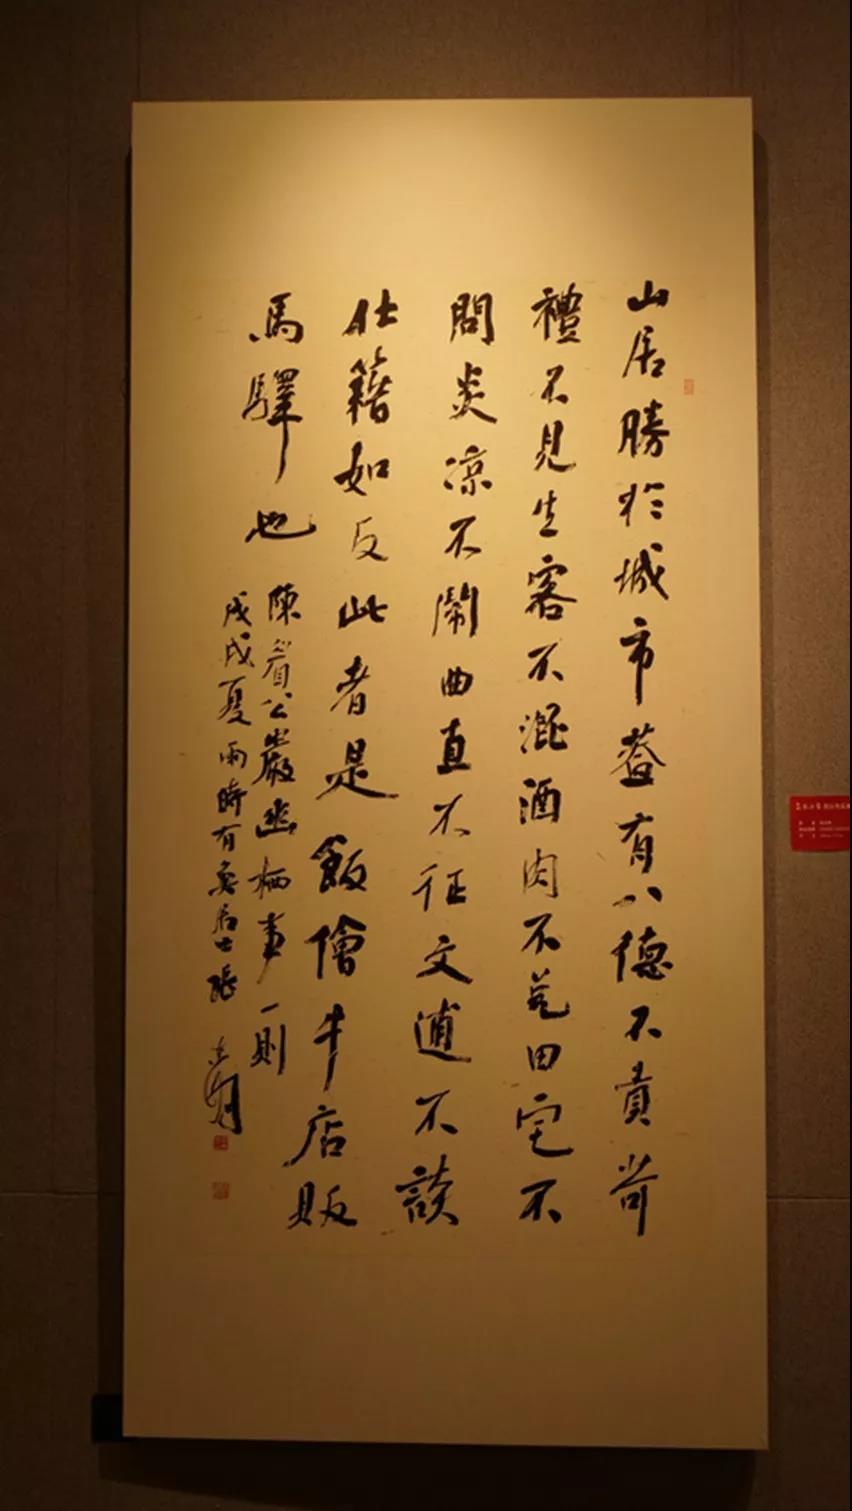 山居勝於城市蓋有八德不責苛
禮不見生客不混酒肉不競田宅不
問炎凉不鬧曲直不征文逋不談
仕籍如反此者是飯儈牛店販
馬驛也
陳眉公巖幽栖事一則
戊戌夏雨時有魚居士張